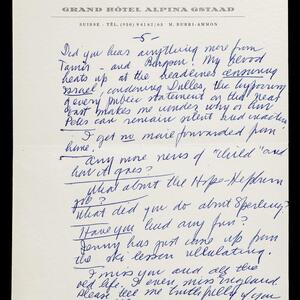 GRAND HÔTEL ALPINA GSTAAD
SUISSE - TÉL. (030) 94182/83 M. BURRI-AMMON
-5-
Did you hear anything more from
Tamir - and Purpon. My blood
heats up at the headlines censuring
Israel, condemning Dulles, the hypocrisy
of every public statement on the Near
East makes me wonder why or how
Peres can remain silent and inactive
I get no mail forwarded from
home.
Any more news of "Child" and
how it goes?
What about the Hope-Hepburn
job?
What did you do about Sperling?
Have you had any fun?
Jenny has just come up from
the ski lesson ululating.
I miss you and all the
old life. I even miss England
Please tell me truthfully if you